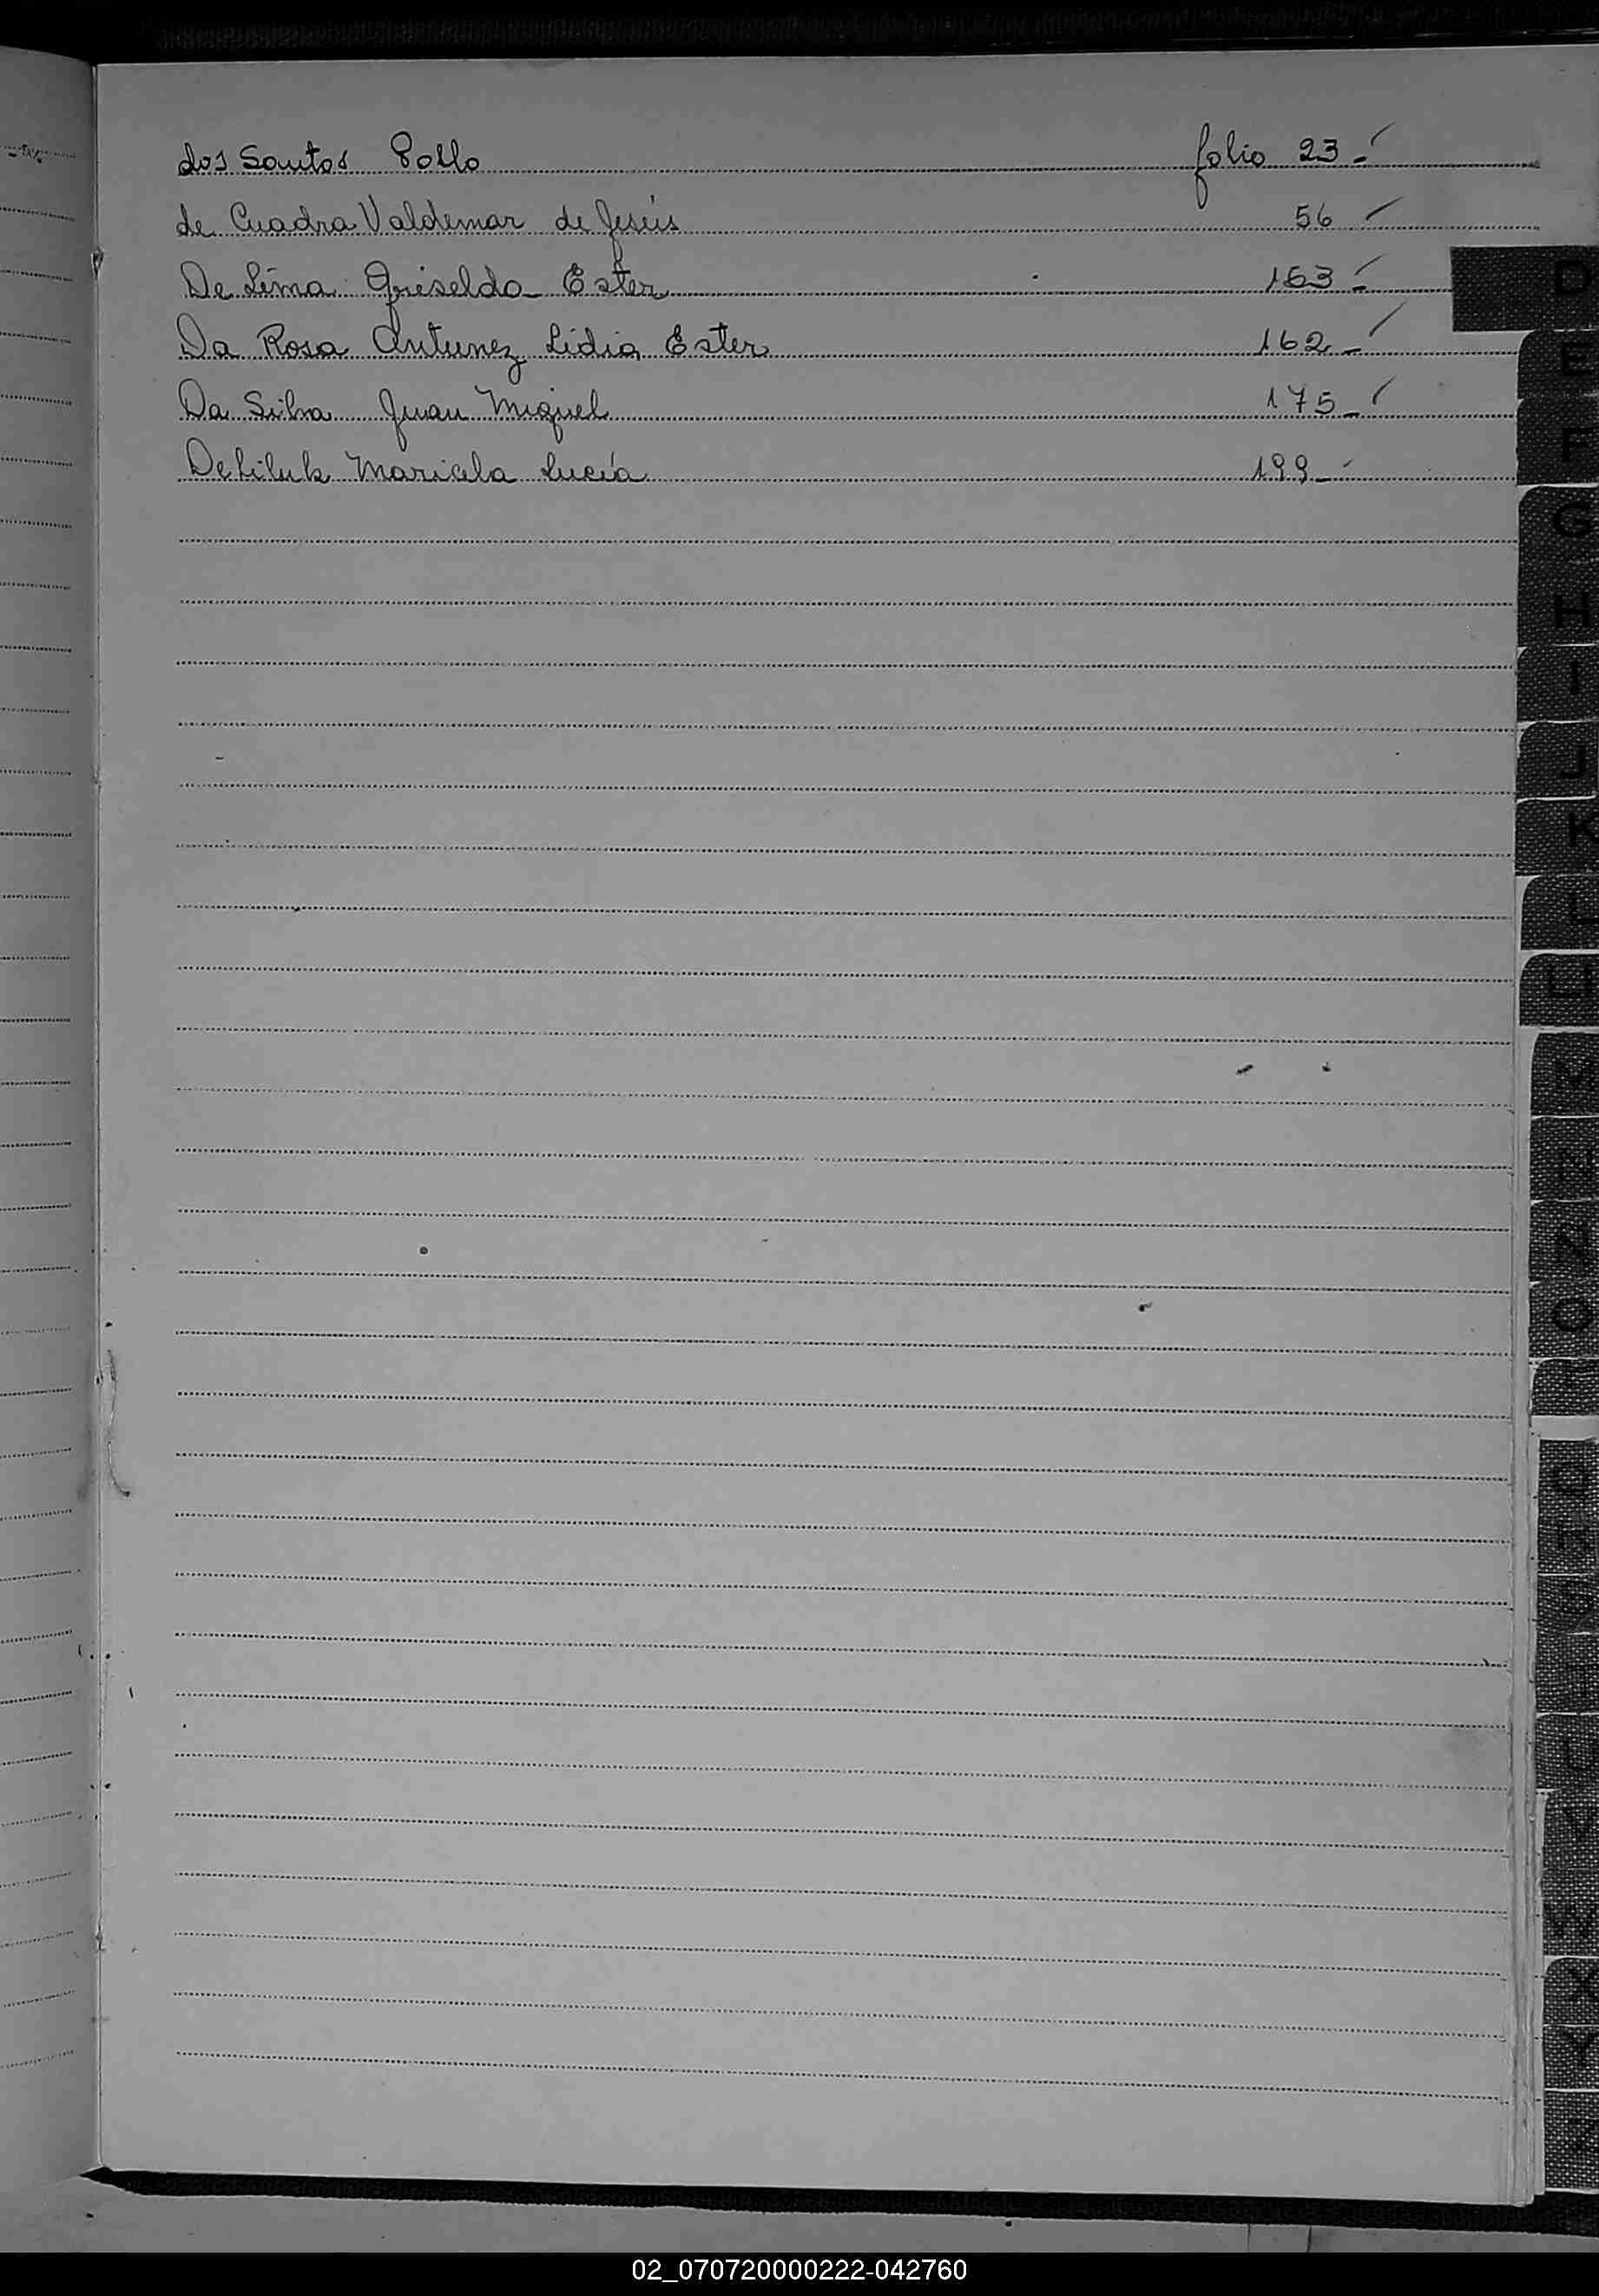 dos Santos Pollo folio 23-
de Cuadra Valdemar de Jesús 56
De Lima Griselda Ester 163-
Da Rosa Antunez Lidia Ester 162-
Da Silva Juan Miguel 175-
Maricela Lucía 199-
D
E
F
G
H
I
J
K
L
LL
M
N
Ñ
O
Q
R
S
T
U
V
W
X
Y
Z
02_070720000222-042760